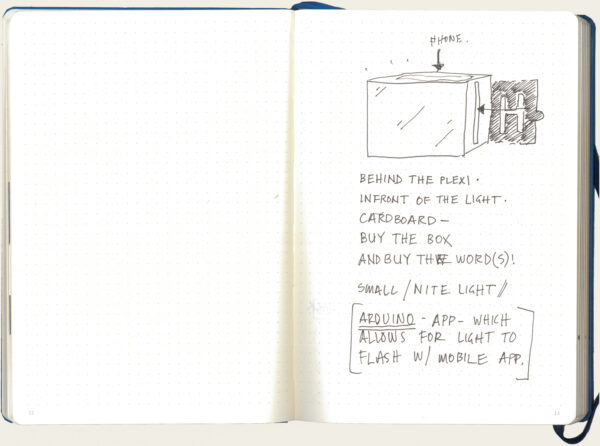 PHONE.
H
BEHIND THE PLEXI.
INFRONT OF THE LIGHT.
CARDBOARD –
BUY THE BOX
AND BUY THE WORD(S)!
SMALL / NITE LIGHT //
[ARDUINO - APP - WHICH
ALLOWS FOR LIGHT TO
FLASH W/ MOBILE APP.]